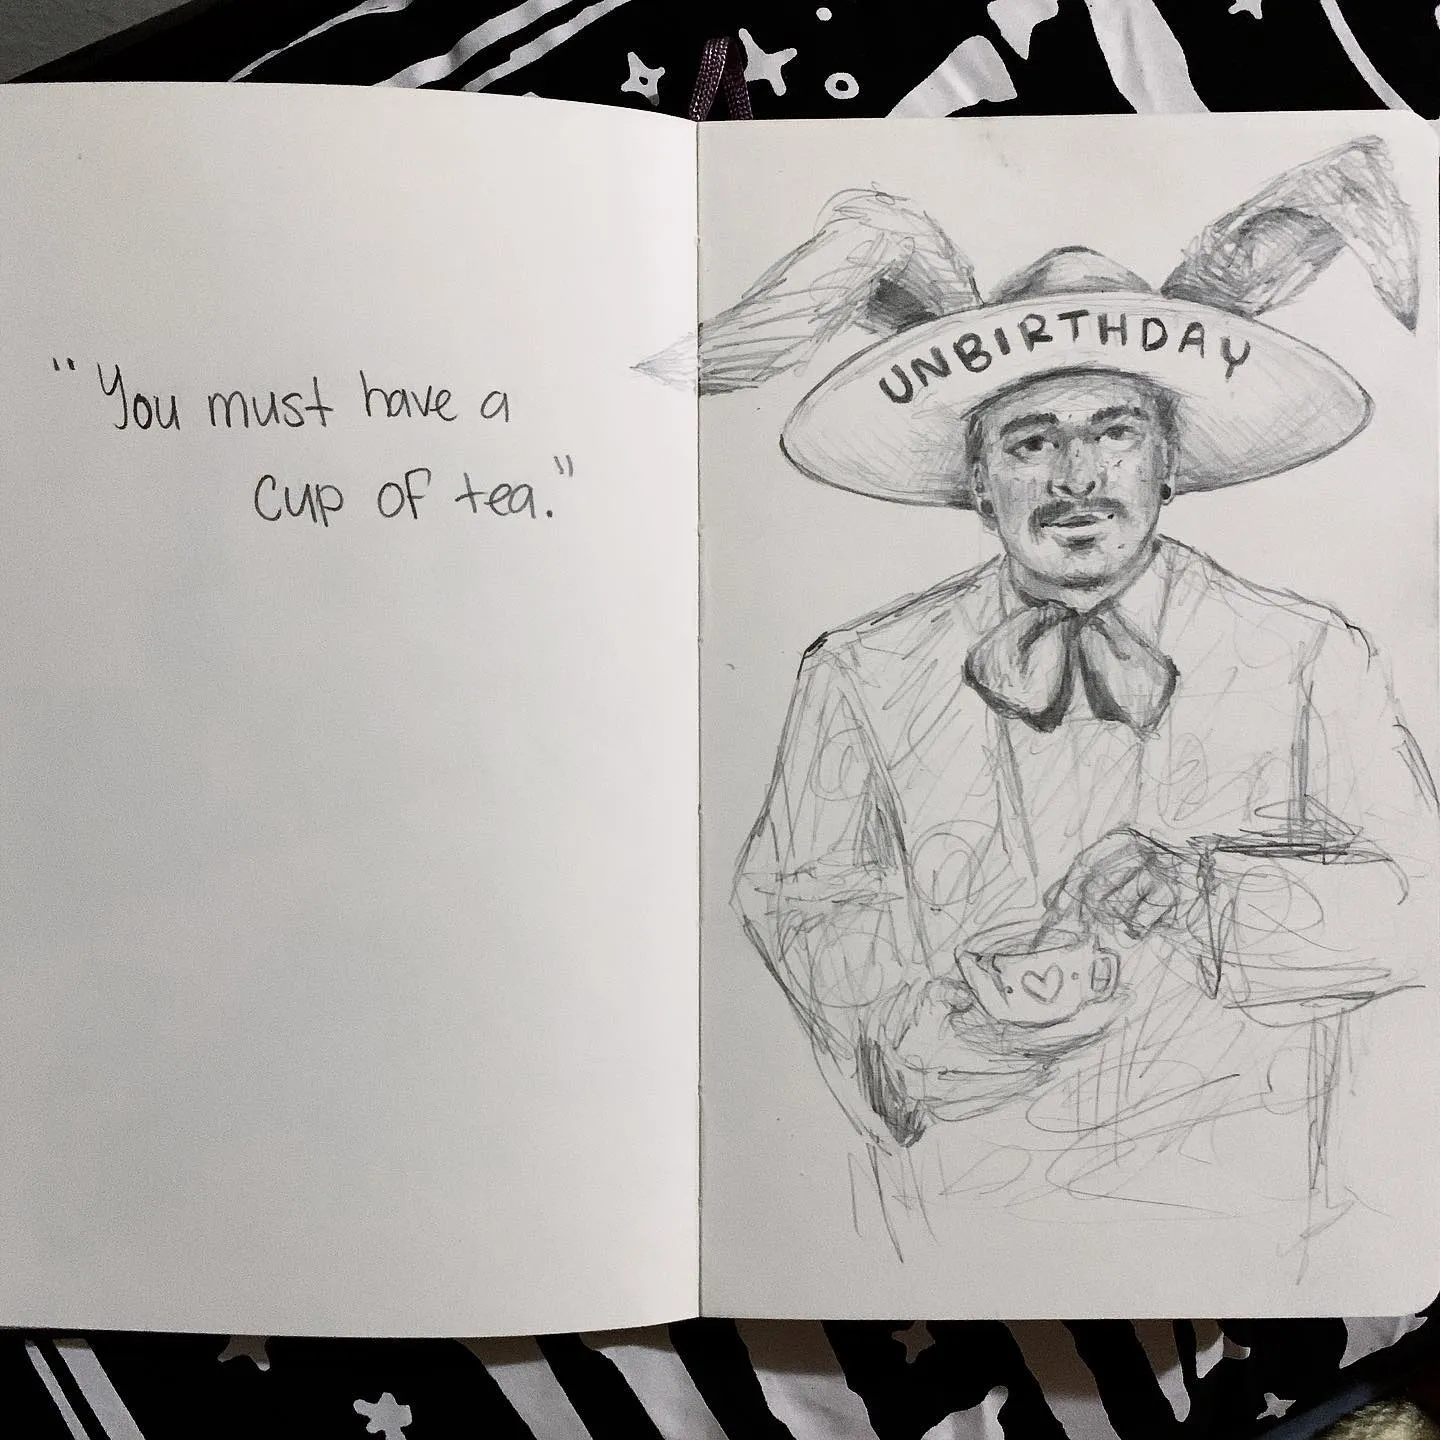 "You must have a
cup of tea."
UNBIRTHDAY